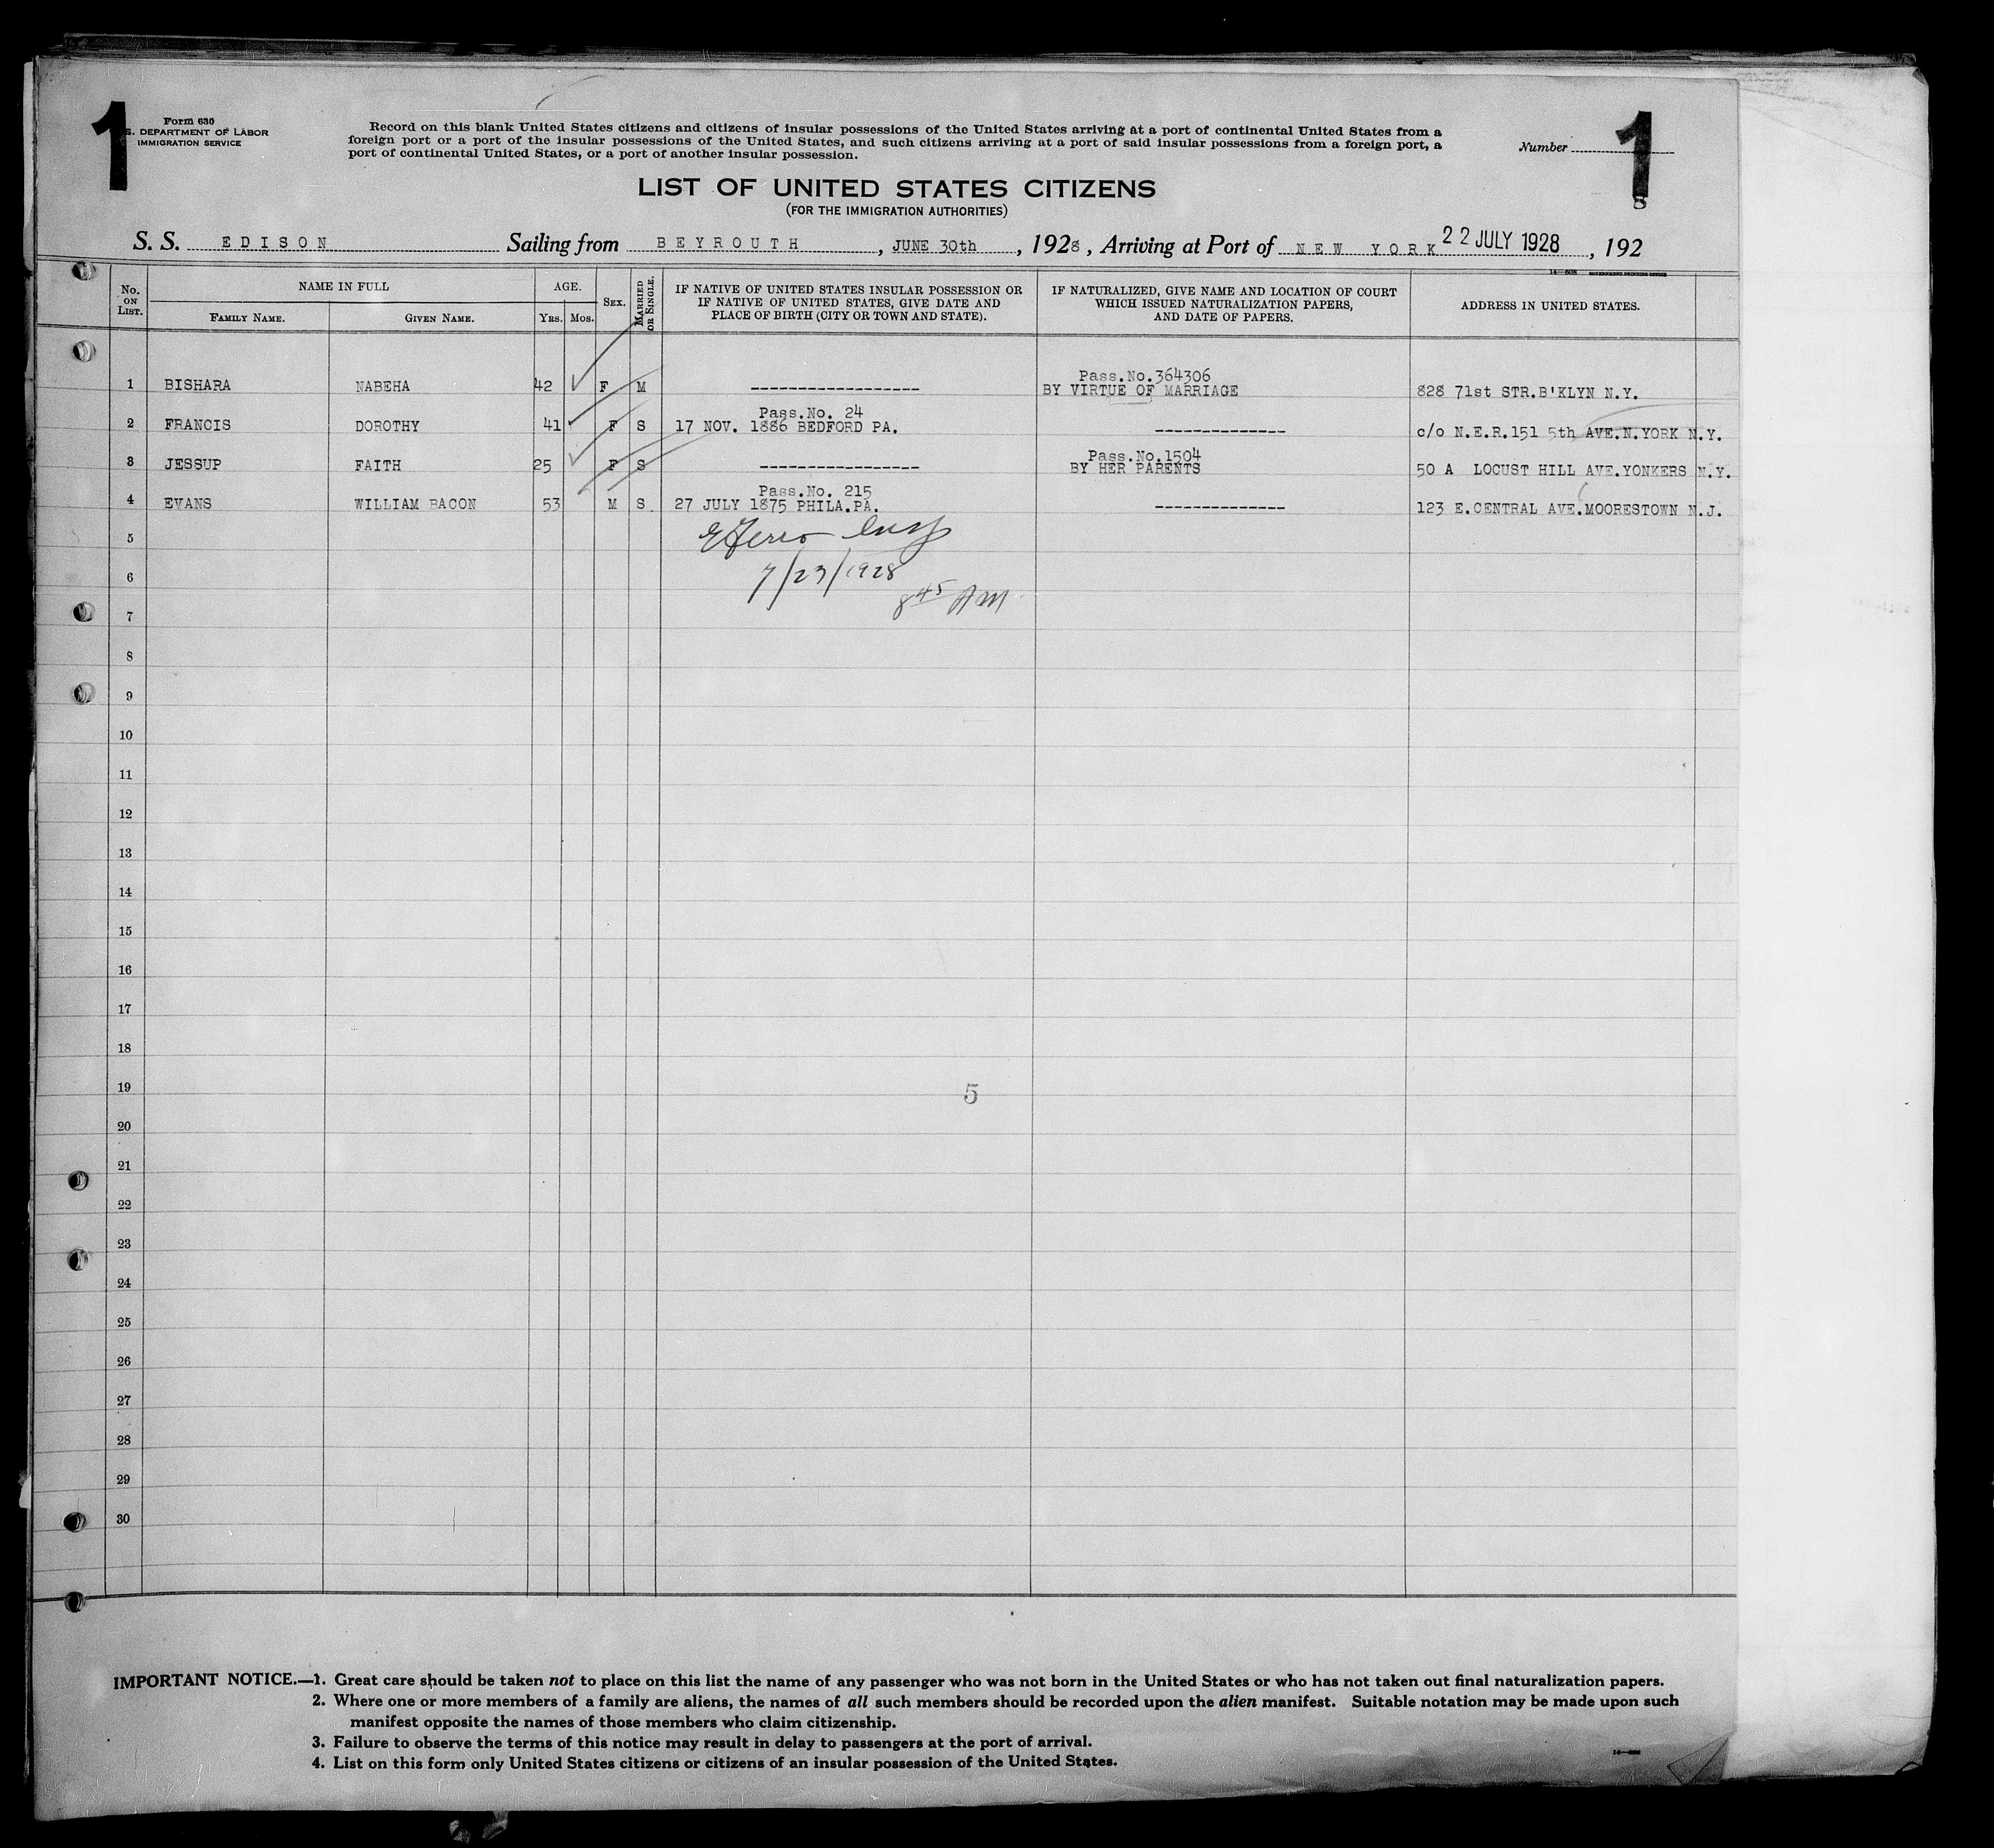 1
Form 630
S. DEPARTMENT OF LABOR
IMMIGRATION SERVICE
Record on this blank United States citizens and citizens of insular possessions of the United States arriving at a port of continental United States from a
foreign port or a port of the insular possessions of the United States, and such citizens arriving at a port of said insular possessions from a foreign port, a
port of continental United States, or a port of another insular possession.
Number
1
LIST OF UNITED STATES CITIZENS
(FOR THE IMMIGRATION AUTHORITIES)
S. S. EDISON Sailing from BEYROUTH, JUNE 30th, 1928, Arriving at Port of NEW YORK 22 JULY 1928, 192
No. ON LIST. NAME IN FULL AGE. SEX. MARRIED OR SINGLE. IF NATIVE OF UNITED STATES INSULAR POSSESSION OR IF NATIVE OF UNITED STATES, GIVE DATE AND PLACE OF BIRTH (CITY OR TOWN AND STATE). IF NATURALIZED, GIVE NAME AND LOCATION OF COURT WHICH ISSUED NATURALIZATION PAPERS, AND DATE OF PAPERS. ADDRESS IN UNITED STATES.
FAMILY NAME. GIVEN NAME. YRS. MOS.
Pass.No.364306
1 BISHARA NABEHA 42 F M ------------------ BY VIRTUE OF MARRIAGE 828 71st STR.B'KLYN N.Y.
Pass.No. 24
2 FRANCIS DOROTHY 41 F S 17 NOV. 1886 BEDFORD PA. -------------- c/o N.E.R.151 5th AVE.N.YORK N.Y.
Pass.No.1504
3 JESSUP FAITH 25 F S ----------------- BY HER PARENTS 50 A LOCUST HILL AVE.YONKERS N.Y.
Pass.No. 215
4 EVANS WILLIAM BACON 53 M S. 27 JULY 1875 PHILA.PA. -------------- 123 E.CENTRAL AVE.MOORESTOWN N.J.
5
6 7/23/1928
7 8 45 AM
8
9
10
11
12
13
14
15
16
17
18
19 5
20
21
22
23
24
25
26
27
28
29
30
IMPORTANT NOTICE.—1. Great care should be taken not to place on this list the name of any passenger who was not born in the United States or who has not taken out final naturalization papers.
2. Where one or more members of a family are aliens, the names of all such members should be recorded upon the alien manifest. Suitable notation may be made upon such
manifest opposite the names of those members who claim citizenship.
3. Failure to observe the terms of this notice may result in delay to passengers at the port of arrival.
4. List on this form only United States citizens or citizens of an insular possession of the United States.